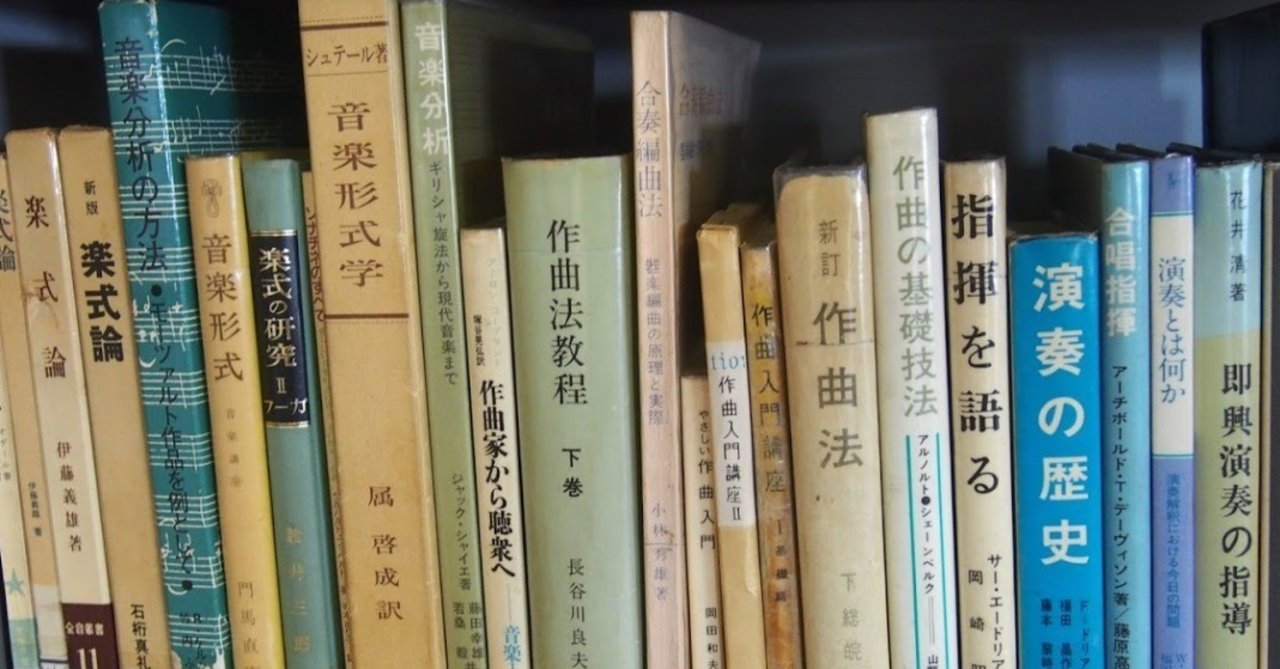 楽式論
楽式論
伊藤義雄著
新版
楽式論
石桁真礼
全音叢書
11
音楽分析の方法●モーツァルト作品を例として●
音楽形式
音楽講座
門馬直
楽式の研究
II
フーガ
ソナチネのすべて
シュテール著
音楽形式学
属啓成訳
音楽分析
ギリシャ旋法から現代音楽まで
ジャック・シャイエ著
アーロン・コープランド
塚谷晃弘訳
作曲家から聴衆へ
音楽
作曲法教程
下巻
長谷川良夫
合奏編曲法
器楽編曲の原理と実際
小林秀雄著
やさしい作曲入門
岡田和夫
作曲入門講座II
作曲入門講座
I
基礎篇
新訂
作曲法
下総皖
作曲の基礎技法
アルノルト●シェーンベルク
指揮を語る
サー・エードリア
岡崎昭
演奏の歴史
F・ドーリア
福田昌作
藤本
合唱指揮
アーチボールド・T・デーヴィソン著/藤原高
演奏とは何か
演奏解釈における今日の問題
花井清著
即興演奏の指導